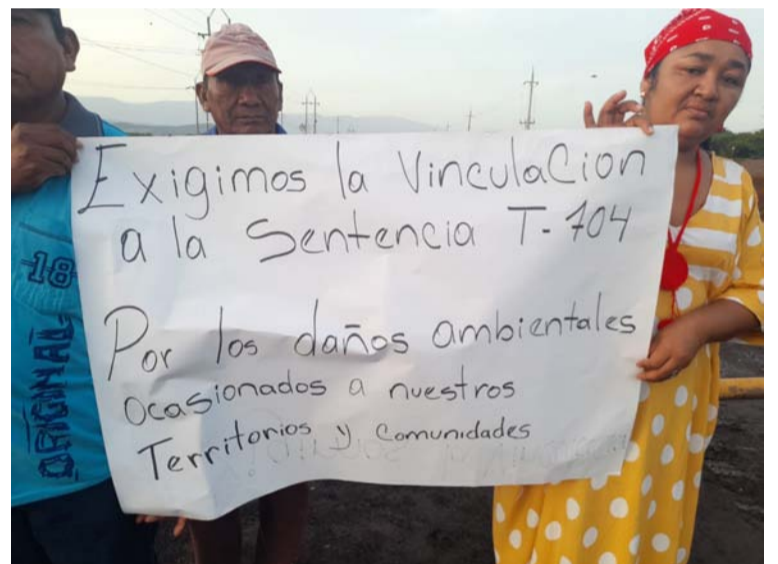 Exigimos la Vinculacion
a la Sentencia T-704
Por los daños ambientales
Ocasionados a nuestros
Territorios y Comunidades
18
ORIGINAL